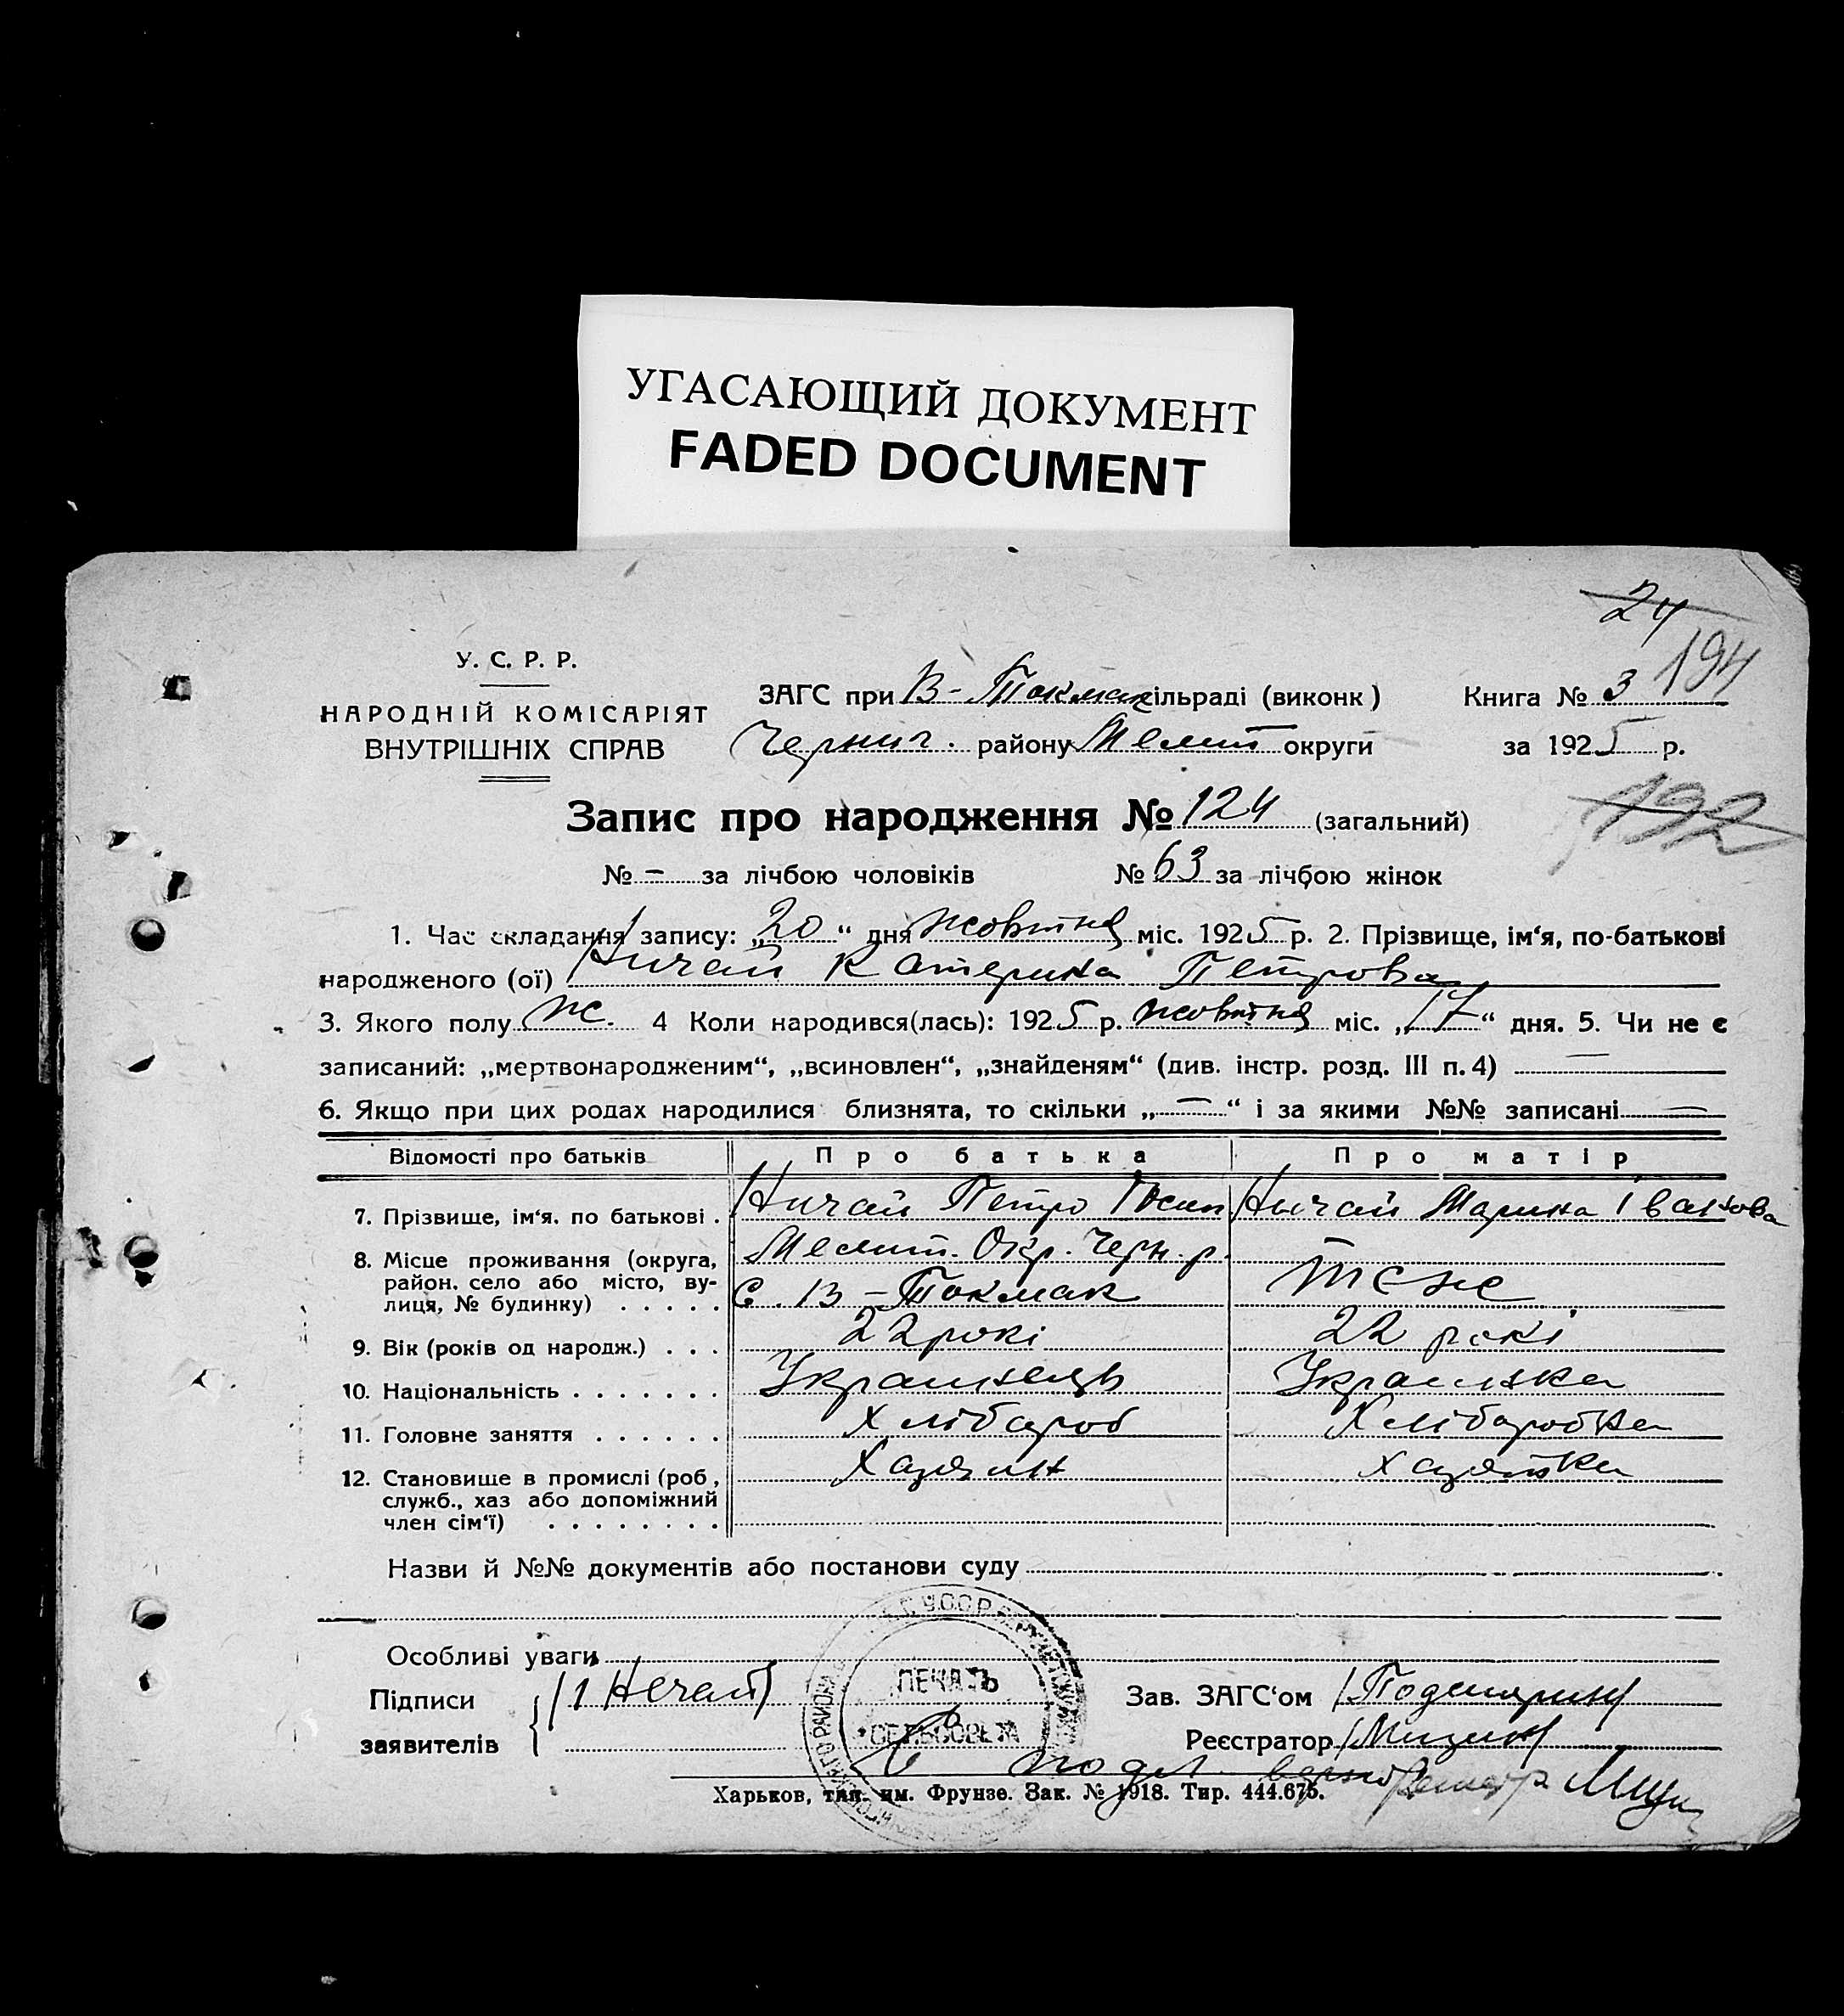 УГАСАЮЩИЙ ДОКУМЕНТ
FADED DOCUMENT
24
194
У. С. Р. Р.
НАРОДНІЙ КОМІСАРІЯТ
ВНУТРІШНІХ СПРАВ
ЗАГС при В-Токмак сільраді (виконк )
Книга № 3
Черниг. району Мелит округи
за 1925 р.
192
Запис про народження № 124 (загальний)
№ – за лічбою чоловіків № 63 за лічбою жінок
1. Час складання запису: „20“ дня жовтня міс. 1925 р. 2. Прізвище, ім‘я, по-батькові
народженого (ої) Ничай Катерина Петрова
3. Якого полу ж. 4 Коли народився(лась): 1925 р. жовтня міс. „17“ дня. 5. Чи не є
записаний: „мертвонародженим“, „всиновлен“, „знайденям“ (див. інстр. розд. III п. 4) —
6. Якщо при цих родах народилися близнята, то скільки „—“ і за якими №№ записані —
Відомості про батьків Про батька Про матір
7. Прізвище, ім‘я. по батькові . Ничай Петро Йосип Ничай Марина Іванова
8. Місце проживання (округа, район. село або місто, вулиця, № будинку) . . . . . Мелит. Окр. Черн. р.
с. В-Токмак теже
9. Вік (років од народж.) . . . 22 рокі 22 рокі
10. Національність . . . . . . . Українець Українка
11. Головне заняття . . . . . . Хлібороб Хліборобка
12. Становище в промислі (роб , служб., хаз або допоміжний член сім‘ї) . . . . . . . . Хазяин Хазяйка
Назви й №№ документів або постанови суду
Особливі уваги
Підписи заявителів
1 Нечай
ПЕЧАТЬ
СЕЛЬСОВЕТА
Зав. ЗАГС‘ом
Реєстратор
верно
Харьков, тип. им. Фрунзе. Зак. № 1918. Тир. 444.675.